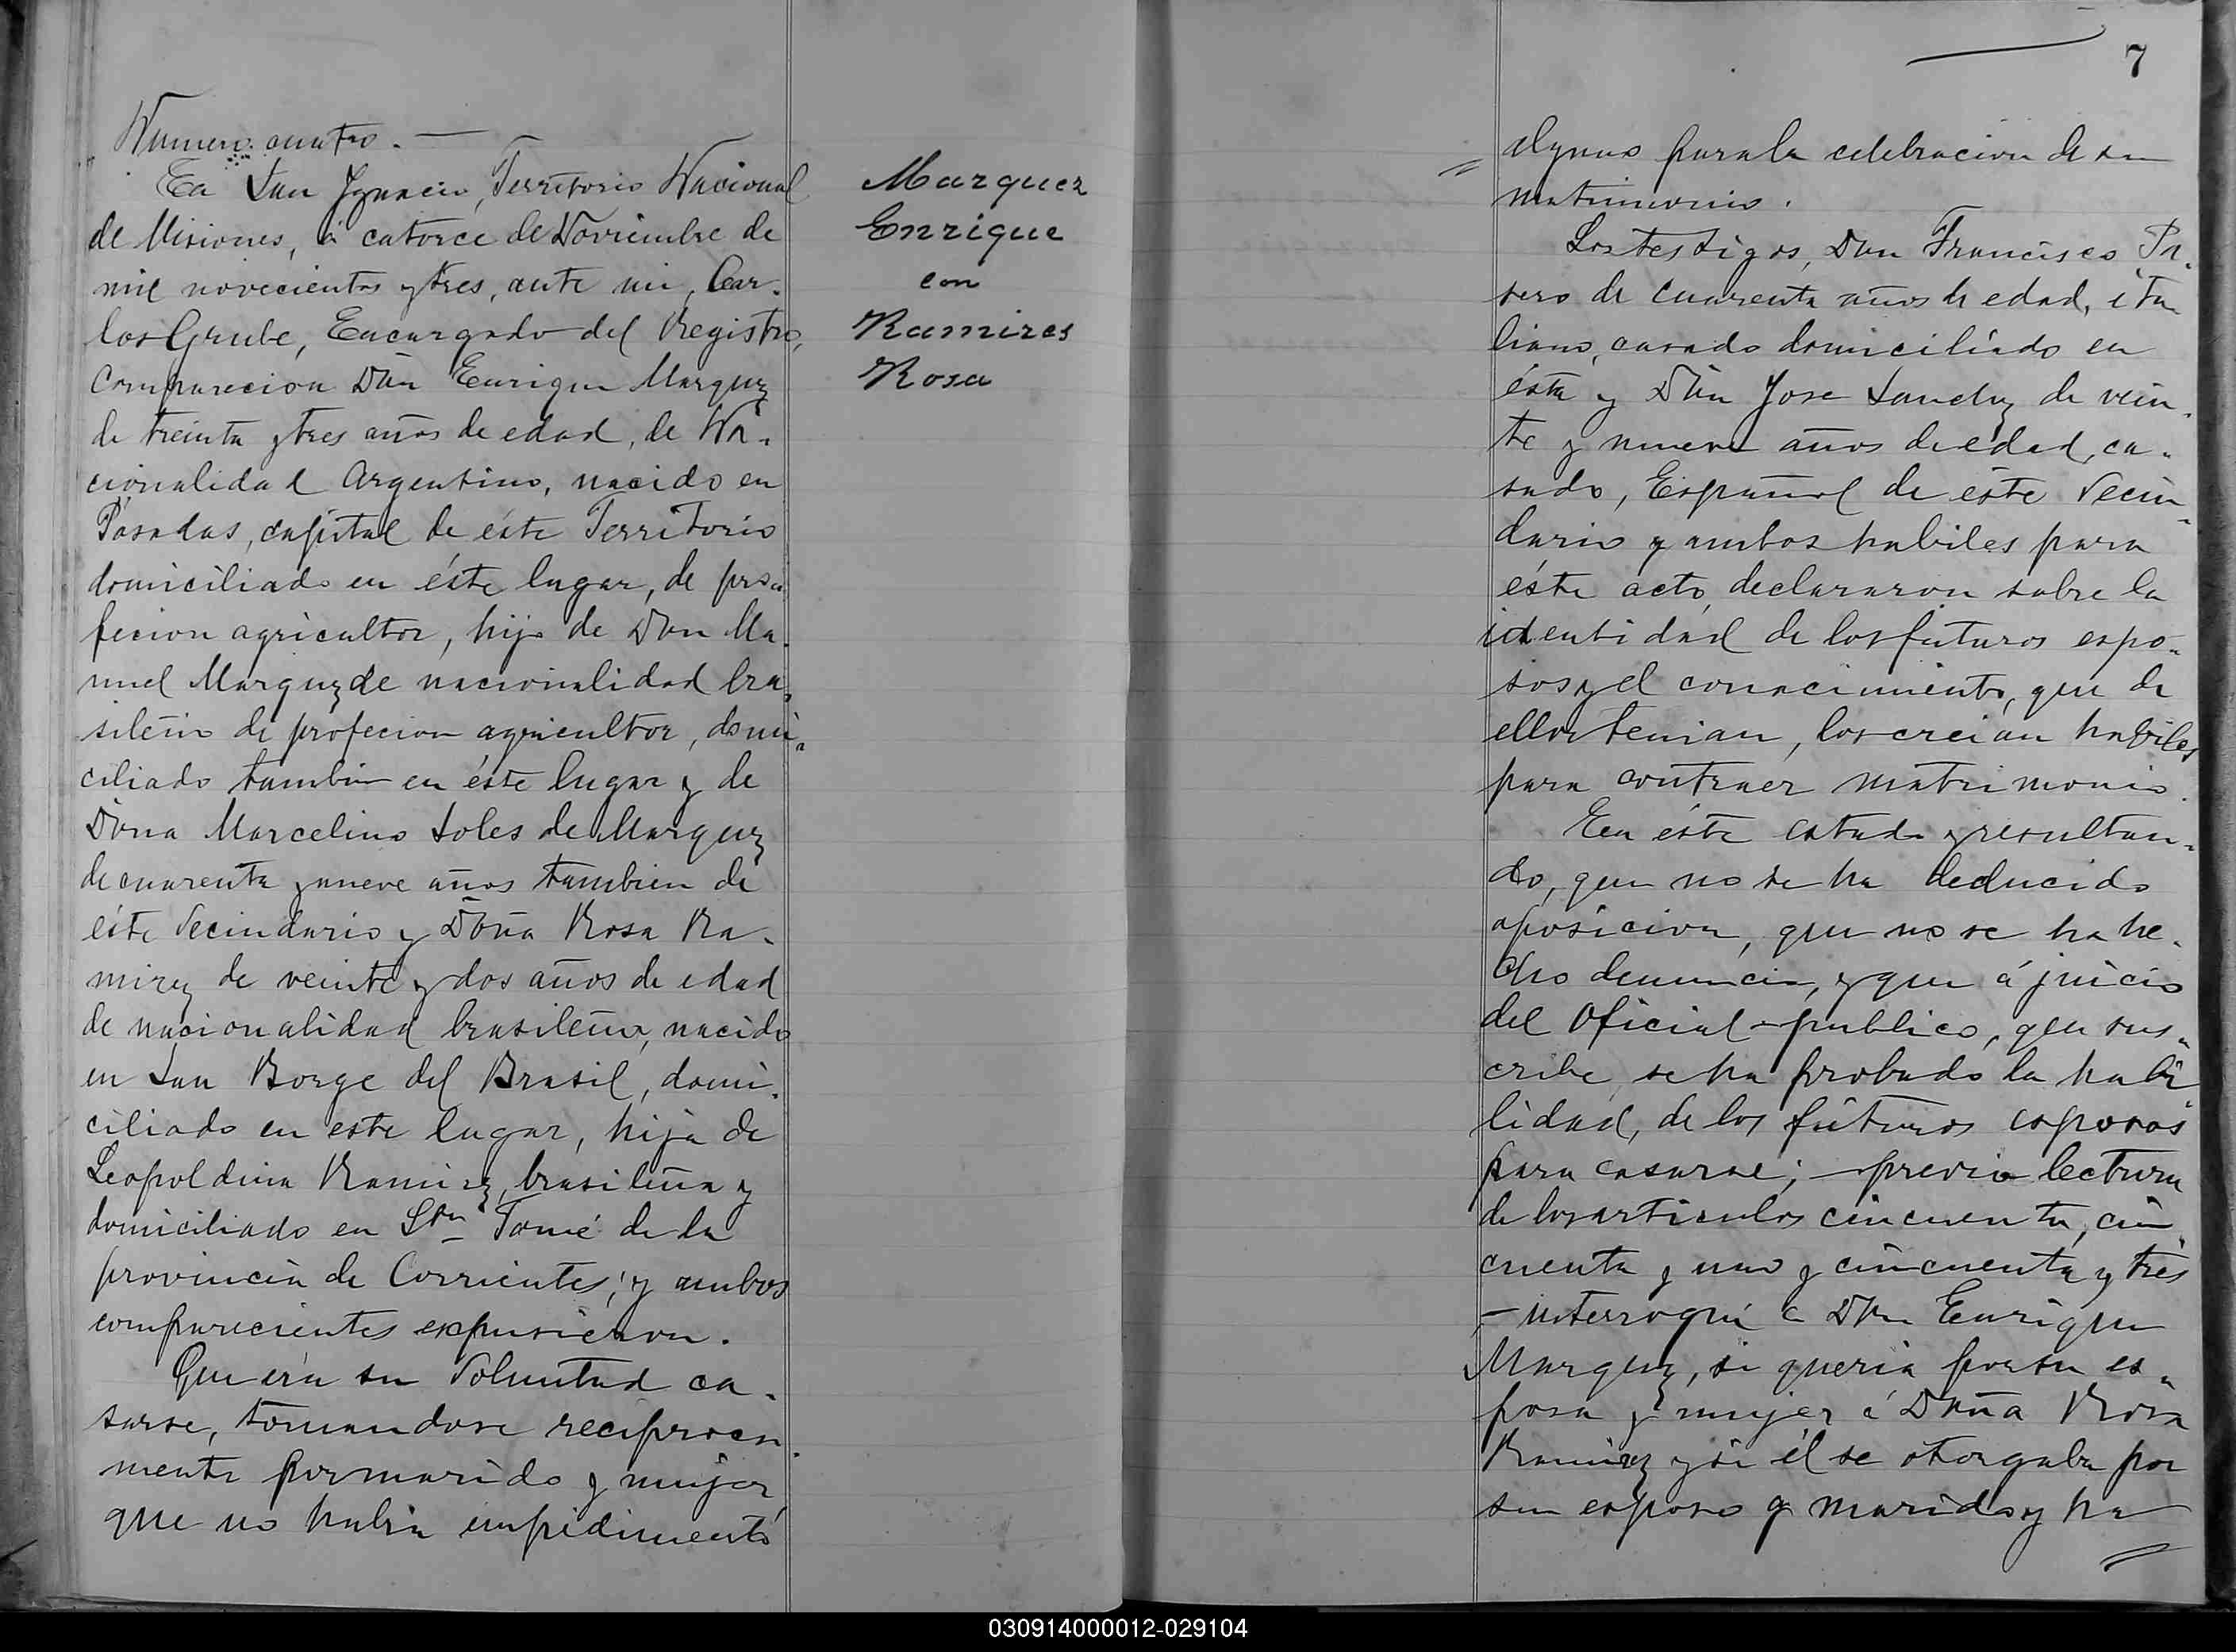 Numero cuatro. —
En San Ygnacio, Territorio Nacional
de Misiones, á catorce de Noviembre de
mil novecientos y tres, ante mi, Car-
los Grube, Encargado del Registro,
Comparecion Dón Enrique Marquez
de treinta y tres años de edad, de Na-
cionalidad Argentino, nacido en
Posadas, capital de éste Territorio
domiciliado en éste lugar, de pro-
fecion agricultor, hijo de Don Ma-
nuel Marquez de nacionalidad bra-
sileño de profecion agricultor, domi-
ciliado tambien en éste lugar y de
Dona Marcelina Soles de Marquez
de cuarenta y nueve años tambien de
éste Vecindario y Doña Rosa Ra-
mirez de veinte y dos años de edad
de nacionalidad brasileña, nacido
en San Borge del Brasil, domi-
ciliado en este lugar, hija de
Leopoldina Ramirez, brasileña y
domiciliado en Sto Tomé de la
provincia de Corrientes; y ambos
comparecientes expusieron.
Que era su Voluntad ca-
sarse, tomandose reciproca-
mente por marido y mujer,
que no habia impedimento
Marquez
Enrique
con
Ramires
Rosa
7
alguno para la celebracion de su
matrimonio.
Los testigos, Don Francisco
de cuarenta años de edad, ita-
liano, casado domiciliado en
ésta y Dón Jose Sanchez de vein-
te y nueve años de edad, ca-
sado, Español de éste Vecin-
dario y ambos habiles para
éste acto, declararon sobre la
identidad de los futuros espo-
sos y el conocimiento, que de
ellos tenian, los creian habiles
para contraer matrimonio.
En éste estado y resultan-
do, que no se ha deducido
oposicion, que no se ha he-
cho denuncia, y que á juicio
del Oficial publico, que sus-
cribe, se ha probado la habi
lidad, de los futuros esposos
para casarse; previa lectura
de los articulos cincuenta, cin
cuenta y uno y cincuenta y tres
- interrogué a Don Enrique
Marquez, si queria por su es-
posa y mujer á Doña Rosa
Ramirez y si él se otorgaba por
su esposo y marido y ha
030914000012-029104